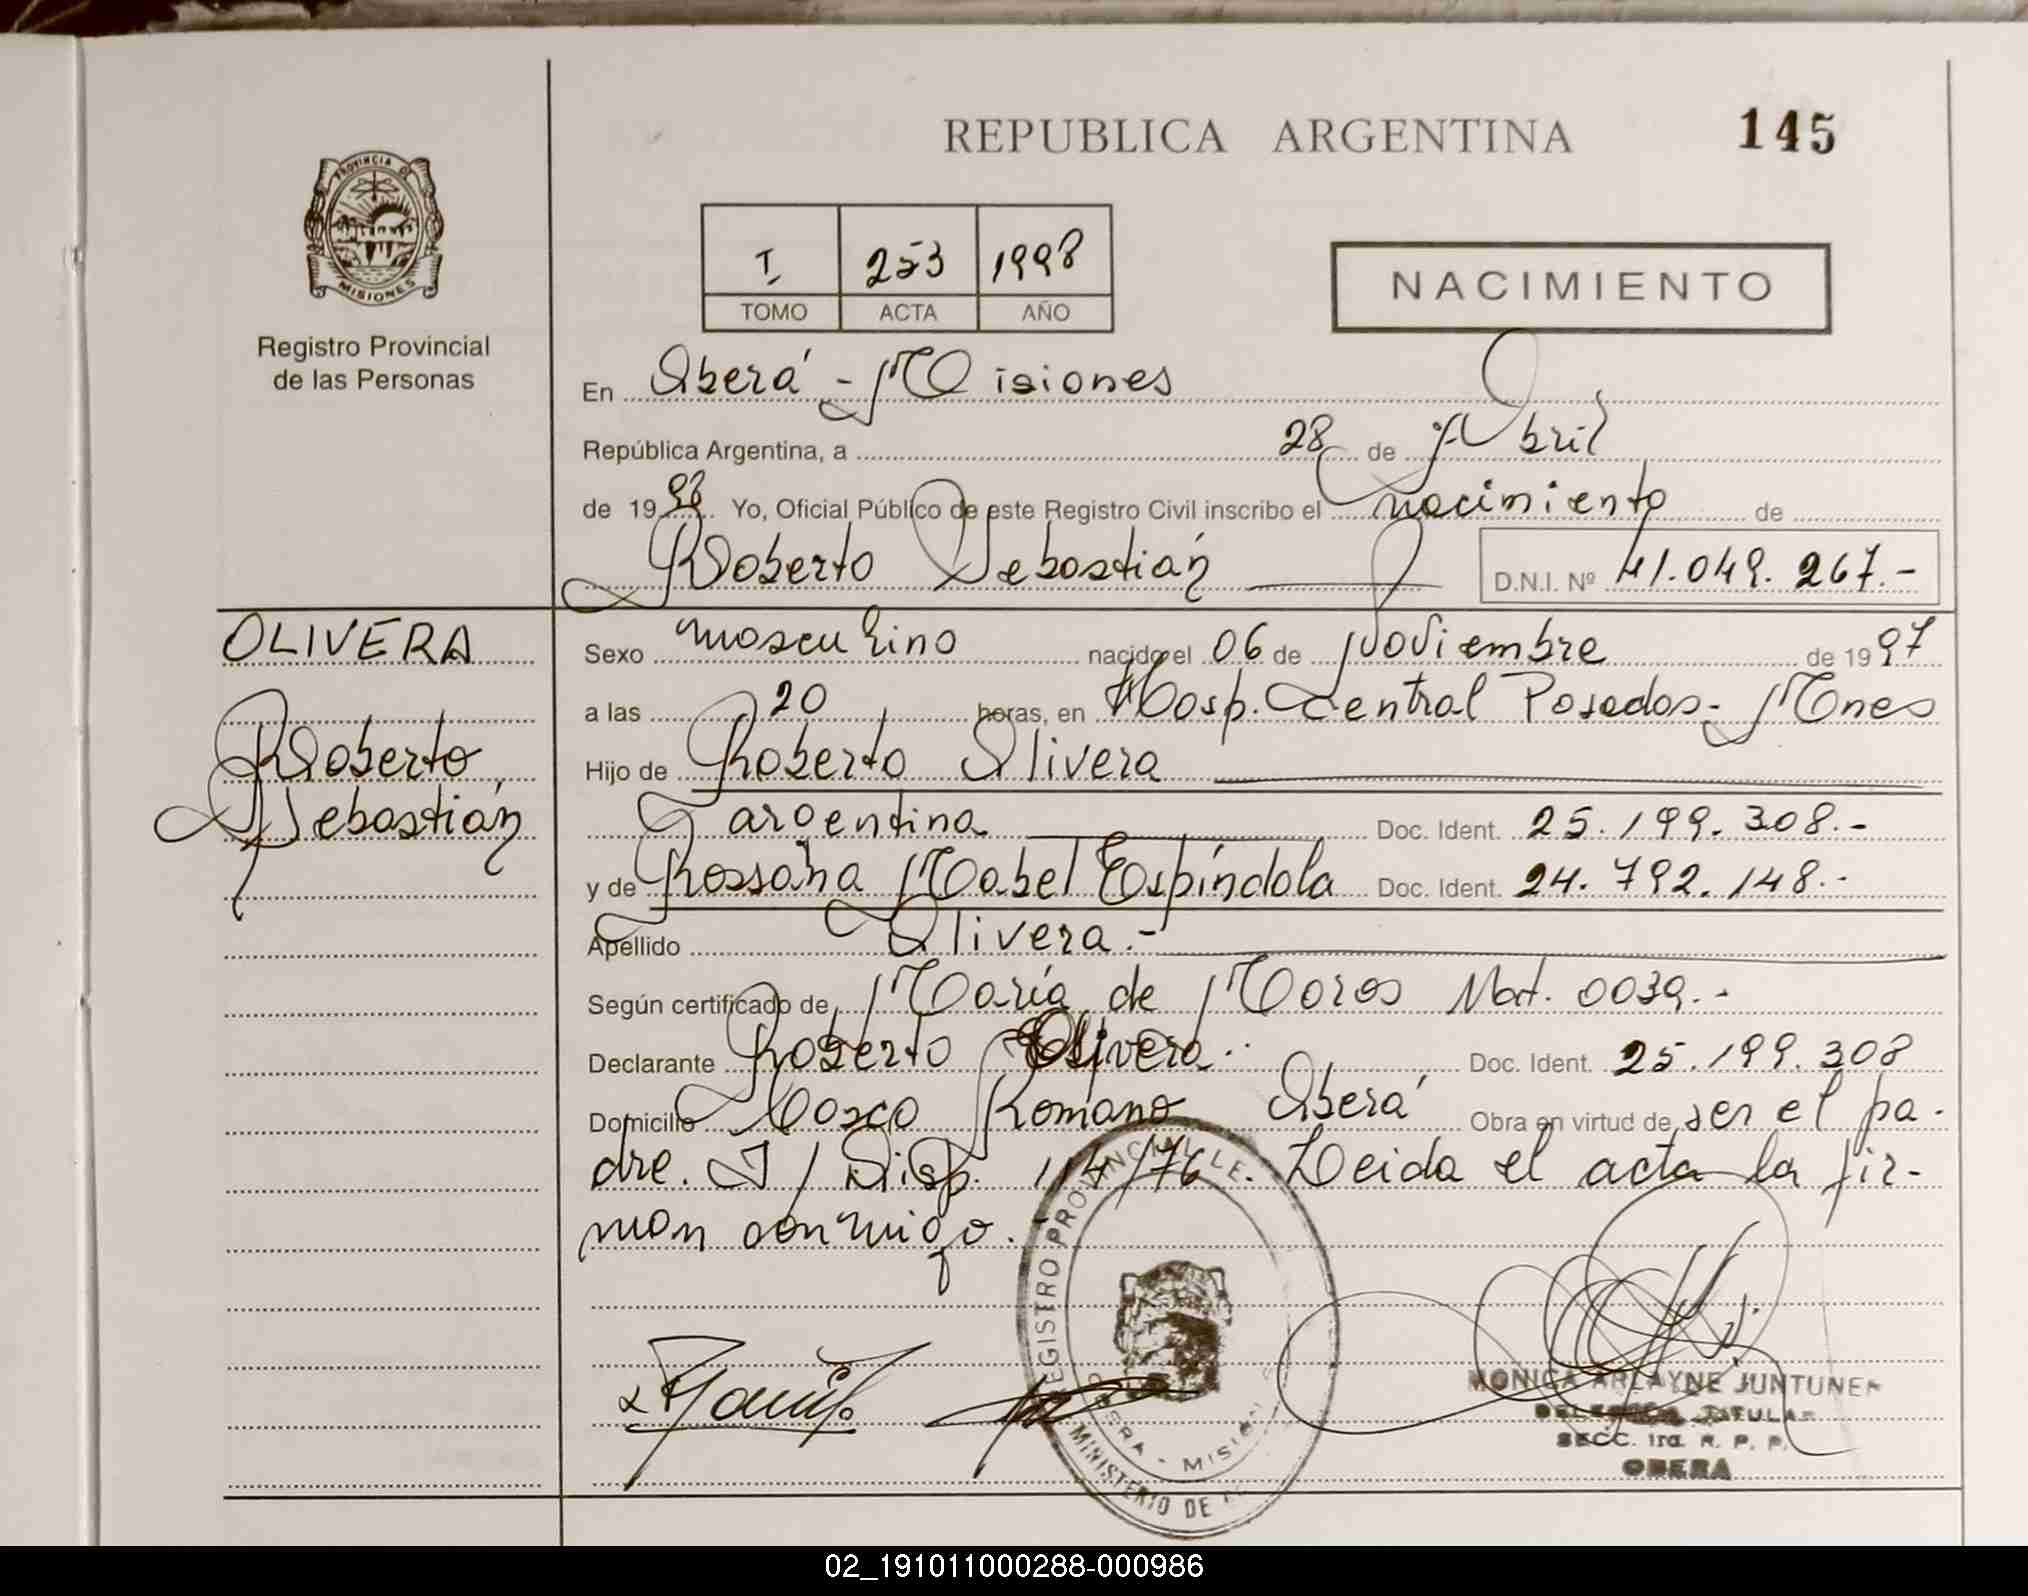 REPUBLICA ARGENTINA
145
PROVINCIA DE
MISIONES
Registro Provincial
de las Personas
I 253 1998
TOMO ACTA AÑO
NACIMIENTO
En Oberá - Misiones
República Argentina, a 28 de Abril
de 1998 Yo, Oficial Público de este Registro Civil inscribo el nacimiento de
Roberto Sebastián D.N.I. Nº 41.049.267.-
OLIVERA
Roberto
Sebastián
Sexo masculino nacido el 06 de Noviembre de 1997
a las 20 horas, en Hosp. Central Posadas - Mnes
Hijo de Roberto Olivera
argentina Doc. Ident. 25.199.308.-
y de Rossana Mabel Espíndola Doc. Ident. 24.792.148.-
Apellido Olivera.-
Según certificado de María de Moros Mat. 0039.-
Declarante Roberto Olivera.- Doc. Ident. 25.199.308
Domicilio Marco Romano Oberá Obra en virtud de ser el pa-
dre. I/Disp. 114/76. Leida el acta la fir-
man conmigo.-
REGISTRO PROVINCIAL DE
OBERA - MISIONES
MINISTERIO DE
MONICA ARLAYNE JUNTUNEN
DELEGADA TITULAR
SECC. 1ra. R. P. P.
OBERA
02_191011000288-000986